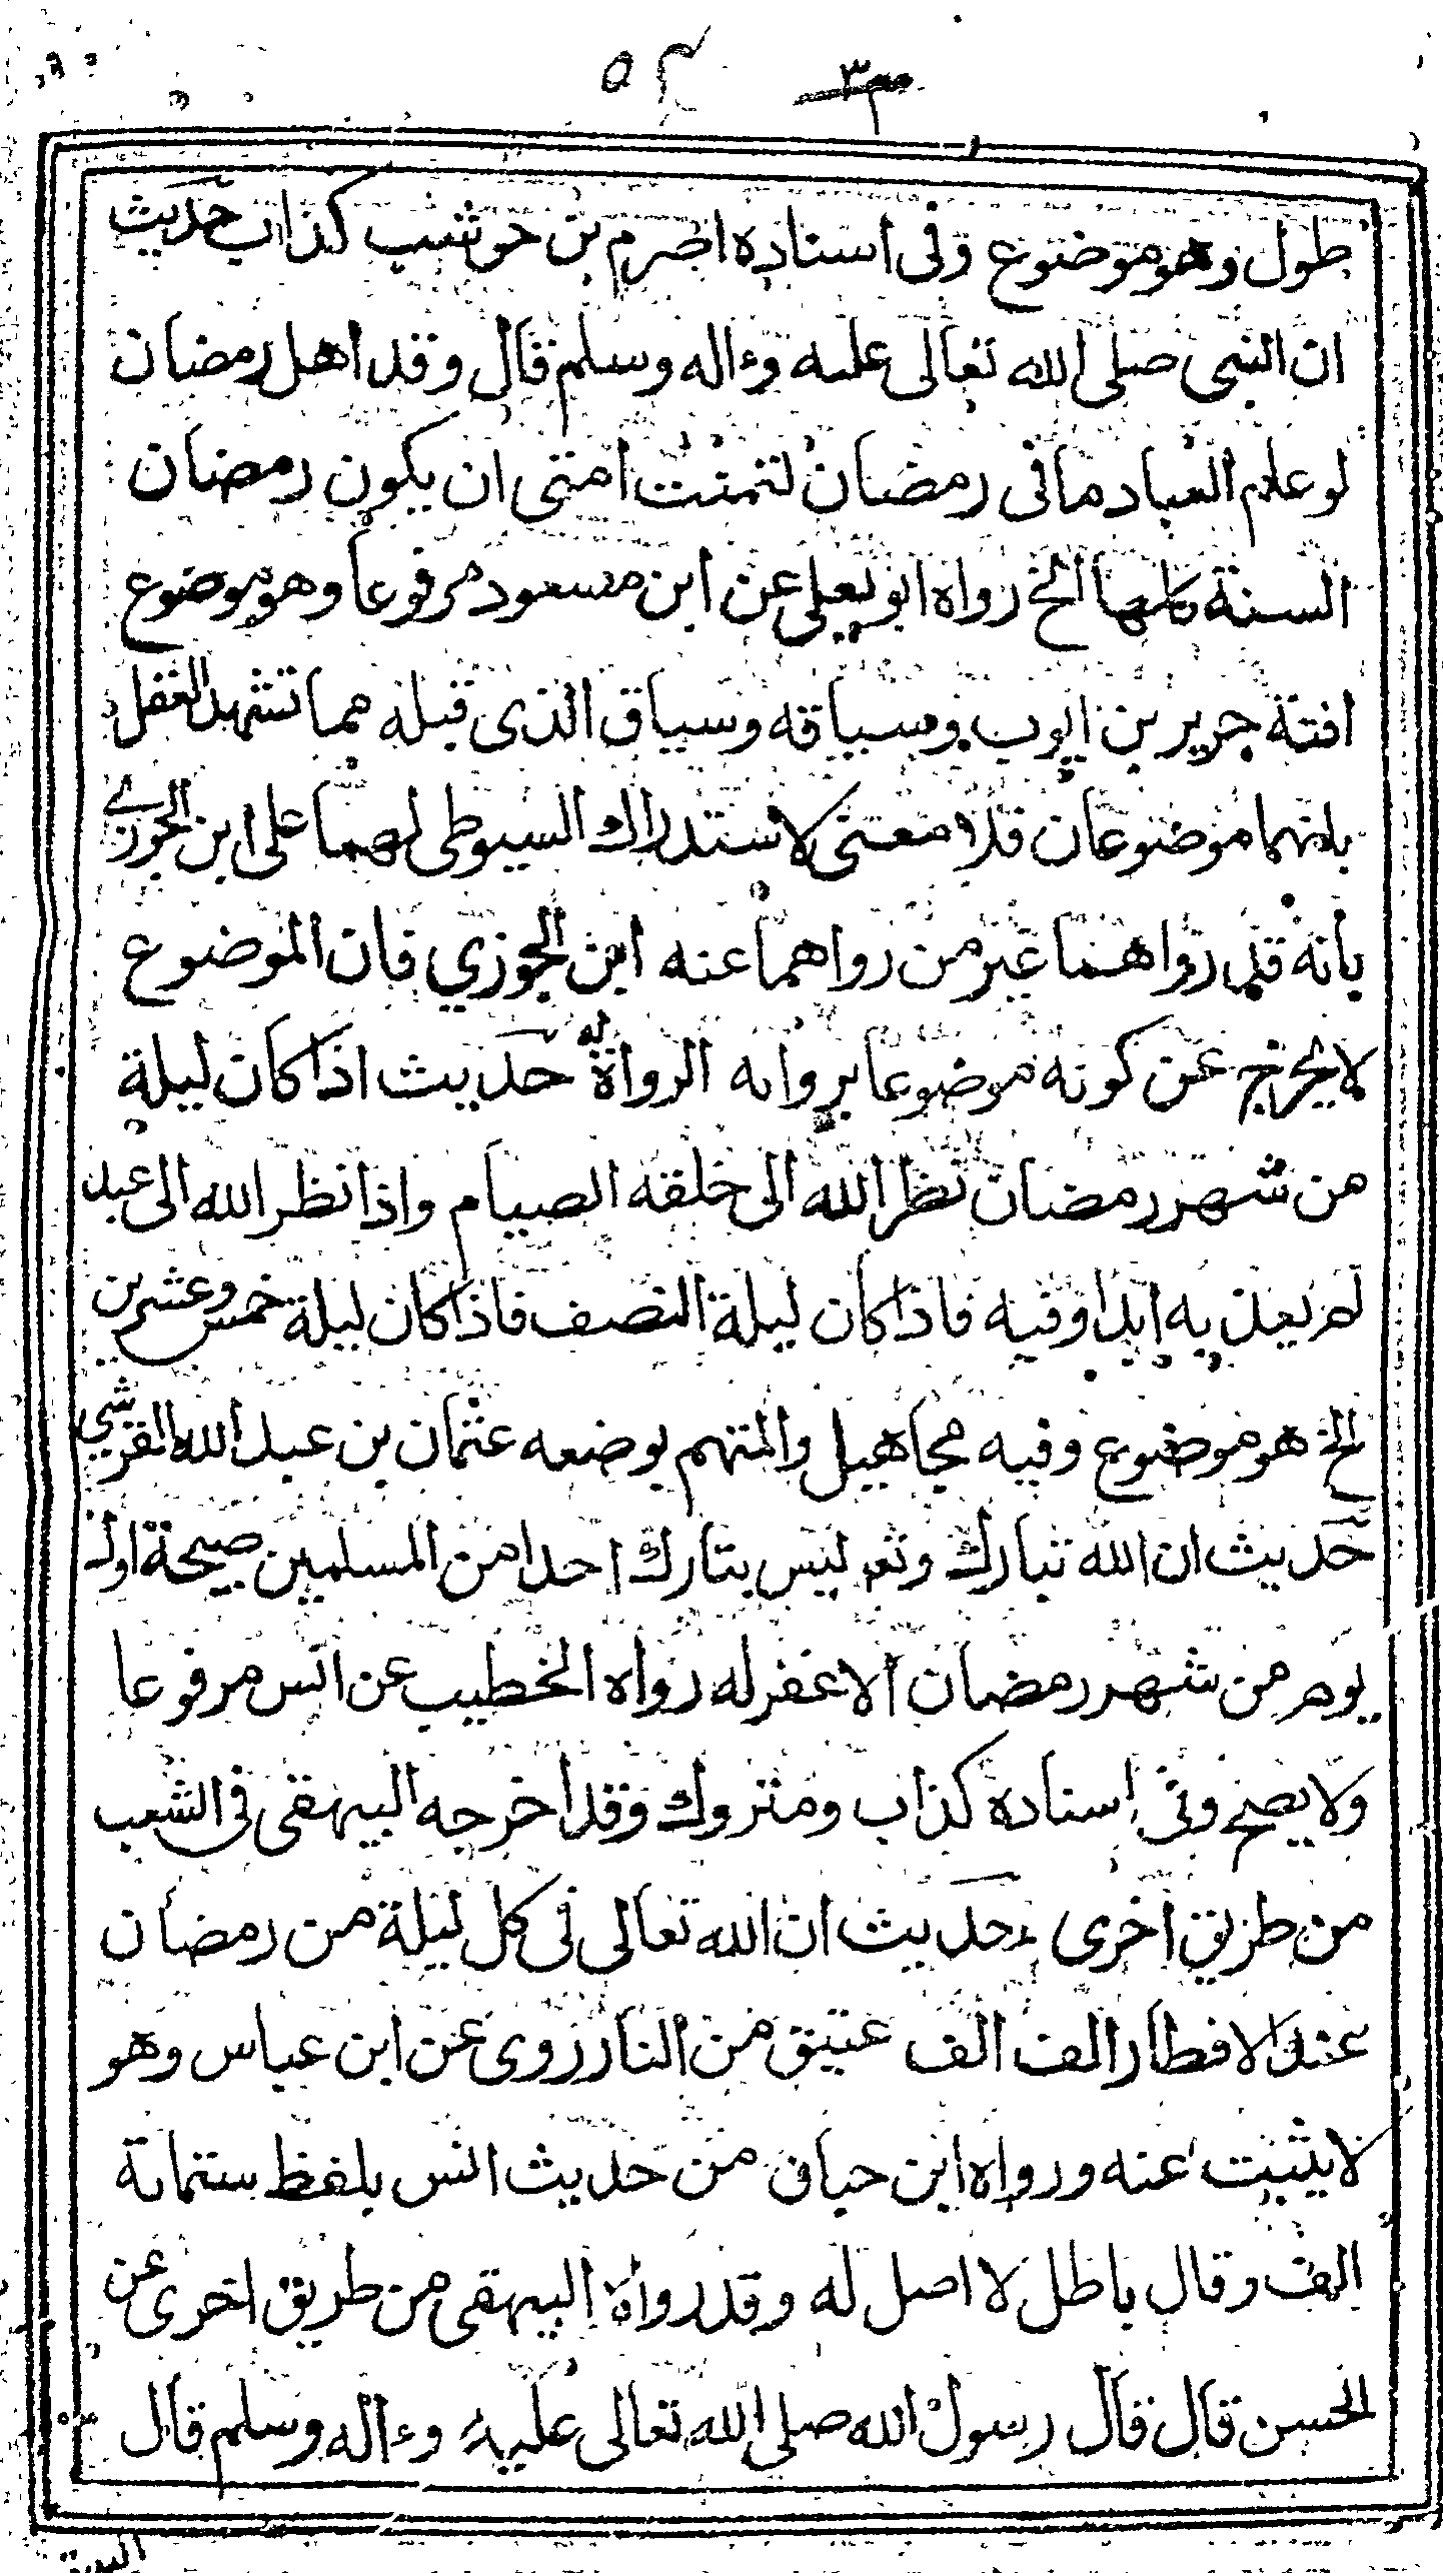 ٥٤ ٣
طول وهو موضوع وفى اسناده اصرم بن حوشب كذاب حديث
ان النبى صلى الله تعالى عليه وءاله وسلم قال وقد اهل رمضان
لو علم العباد ما فى رمضان لتمنت امتى ان يكون رمضان
السنة كلها الخ رواه ابو يعلى عن ابن مسعود مرفوعا وهو موضوع
افته جرير بن ايوب وسياقه وسياق الذى قبله مما تشهد العقل
بانهما موضوعان فلا معنى لاستدراك السيوطى لهما على ابن الجوزي
بانه قد رواهما غير من رواهما عنه ابن الجوزي فان الموضوع
لا يخرج عن كونه موضوعا برواية الرواة له حديث اذا كان ليلة
من شهر رمضان نظر الله الى خلقه الصيام واذا نظر الله الى عبد
لم يعذبه ابدا وفيه فاذا كان ليلة النصف فاذا كان ليلة خمس وعشرين
الخ هو موضوع وفيه مجاهيل والمتهم بوضعه عثمان بن عبد الله القرشي
حديث ان الله تبارك وتعم ليس بتارك احدا من المسلمين صبيحة اول
يوم من شهر رمضان الا غفر له رواه الخطيب عن انس مرفوعا
ولا يصح وفى اسناده كذاب ومتروك وقد اخرجه البيهقى فى الشعب
من طريق اخرى حديث ان الله تعالى فى كل ليلة من رمضان
عند الافطار الف الف عتيق من النار روى عن ابن عباس وهو
لا يثبت عنه ورواه ابن حبان من حديث انس بلفظ ستمائة
الف وقال باطل لا اصل له وقد رواه البيهقى من طريق اخرى عن
الحسن قال قال رسول الله صلى الله تعالى عليه وءاله وسلم قال